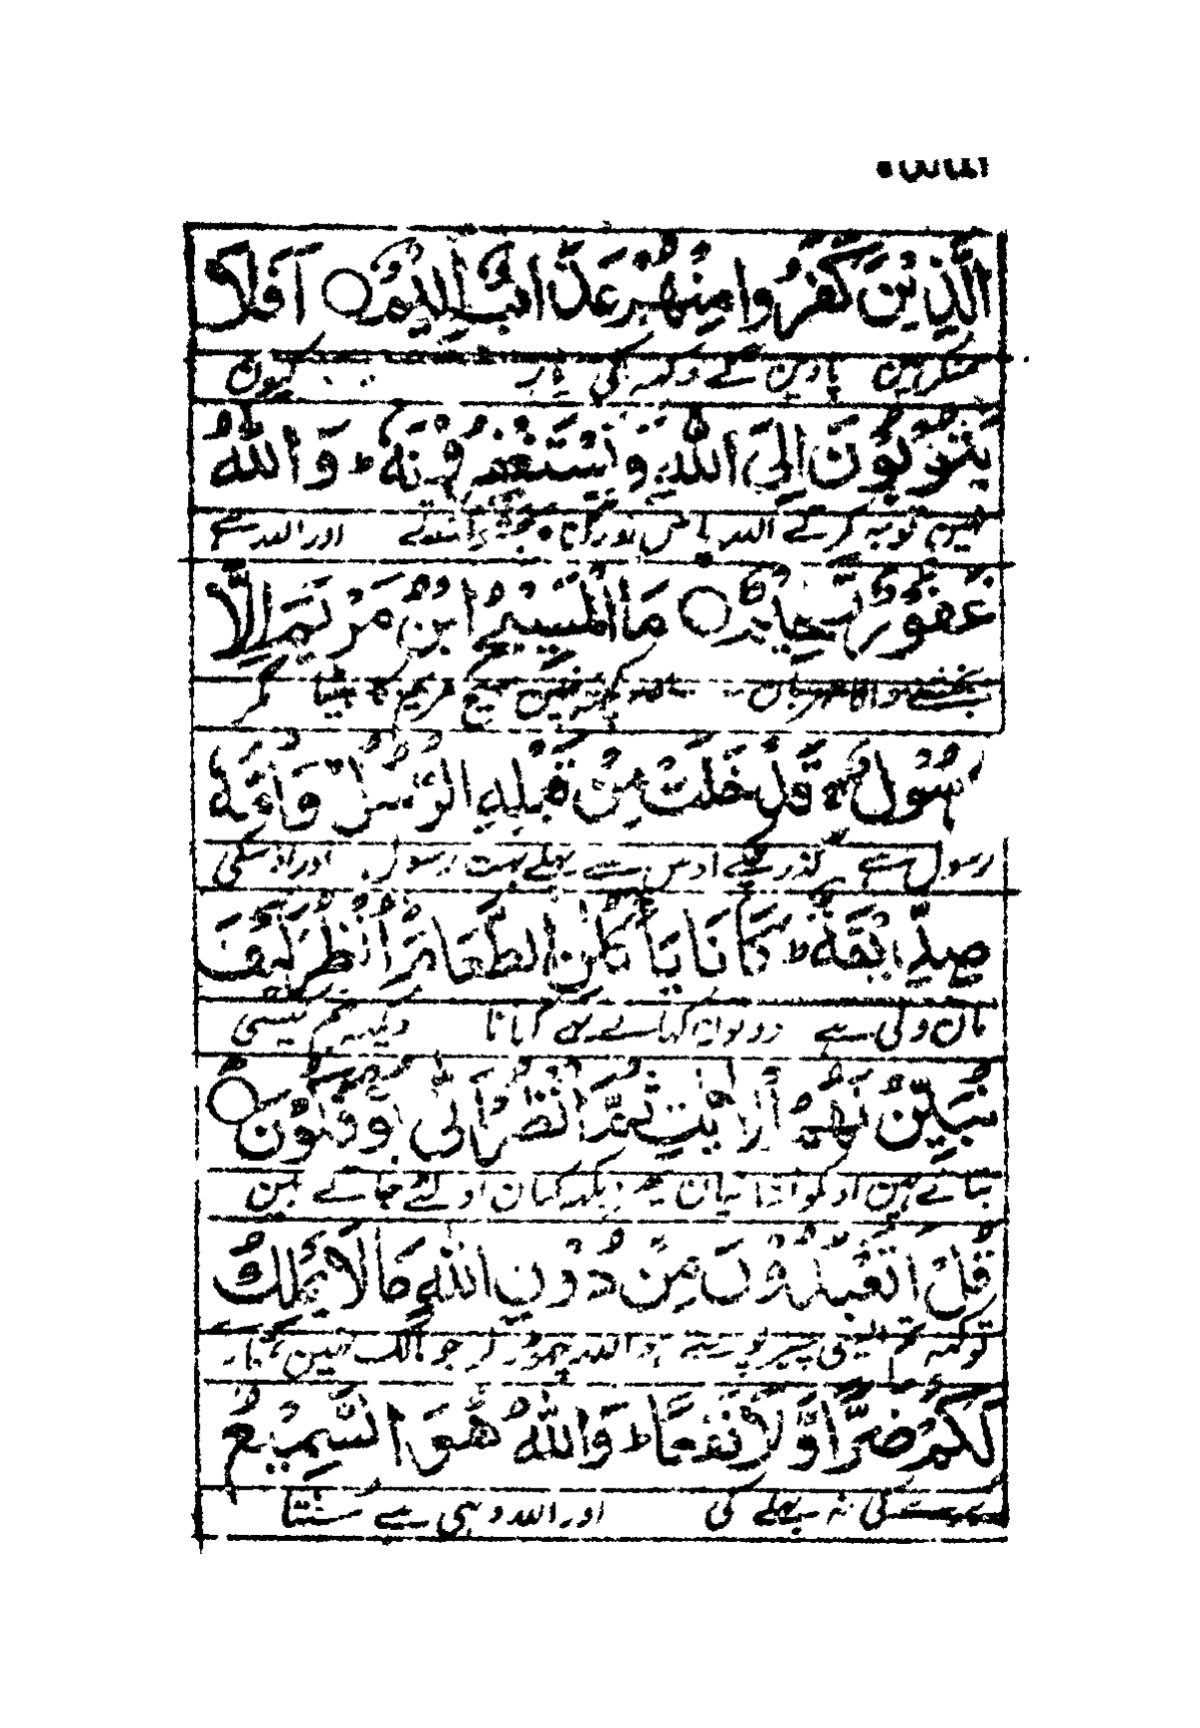 المائدہ ۵
الَّذِیْنَ كَفَرُوْا مِنْهُمْ عَذَابٌ اَلِیْمٌ ○ اَفَلَا
منکر ہین پاوین گے دکھ کی مار کیون
یَتُوْبُوْنَ اِلَی اللّٰهِ وَ یَسْتَغْفِرُوْنَهٗ ط وَ اللّٰهُ
نہین توبہ کرتے اللہ پاس اور گناہ بخشواتے اور اللہ ہے
غَفُوْرٌ رَّحِیْمٌ ○ مَا الْمَسِیْحُ ابْنُ مَرْیَمَ اِلَّا
بخشنے والا مہربان کچھ نہین مسیح مریم کا بیٹا مگر
رَسُوْلٌ ج قَدْ خَلَتْ مِنْ قَبْلِهِ الرُّسُلُ وَ اُمُّهٗ
رسول ہے گذر چکے اوس سے پہلے بہت رسول اور اوسکی
صِدِّیْقَةٌ ط كَانَا یَاْكُلٰنِ الطَّعَامَ اُنْظُرْ كَیْفَ
مان ولی ہے دونو کھاتے تھے کھانا دیکھ ہم کیسی
نُبَیِّنُ لَهُمُ الْاٰیٰتِ ثُمَّ انْظُرْ اَنّٰی یُؤْفَكُوْنَ ○
بتاتے ہین اونکو پھر دیکھ کہان اولٹے جاتے ہین
قُلْ اَتَعْبُدُوْنَ مِنْ دُوْنِ اللّٰهِ مَا لَا یَمْلِكُ
تو کہہ تم ایسی چیز پوجتے ہو اللہ چھوڑ کر جو مالک نہین
لَكُمْ ضَرًّا وَّ لَا نَفْعًا ط وَ اللّٰهُ هُوَ السَّمِیْعُ
برے کی نہ بھلے کی اور اللہ وہی ہے سنتا